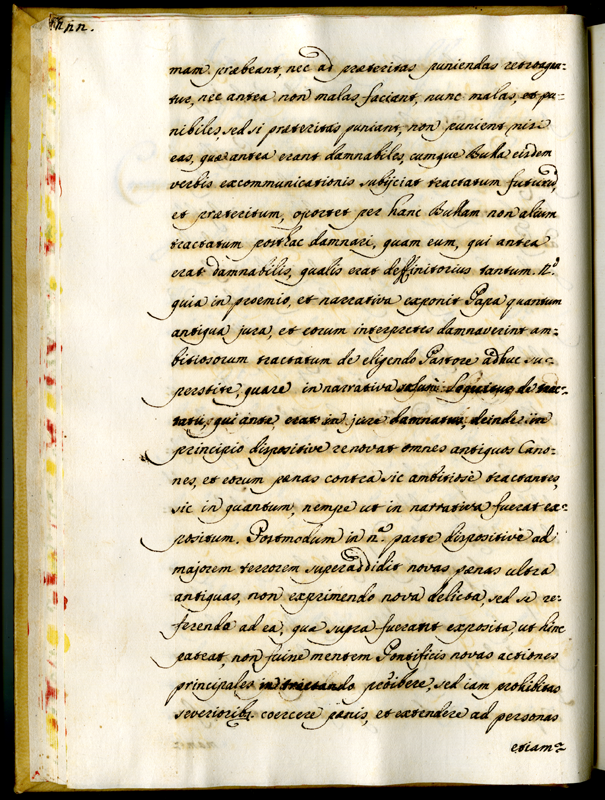 nnn.
mam præbeant, nec ad præteritas puniendas retroagan-
tur, nec antea non malas faciant, nunc malas, et pu-
nibiles, sed si præteritas puniant, non punient nisi
eas, quæ antea erant damnabiles, cumque Bulla eisdem
verbis excommunicationis subijciat tractatum futurũ,
et præteritum, oportet per hanc Bullam non alium
tractatum posthac damnari, quam eum, qui antea
erat damnabilis, qualis erat deffinitorius tantum. n.º
quia in proemio, et narrativa exponit Papa quantum
antiqua jura, et eorum interpretes damnaverint am-
bitiosorum tractatum de eligendo Pastore adhuc su-
perstite, quare in narrativa solum loquitur de trac-
tatu, qui ante, erat in jure damnatus, deinde in
principio dispositivæ renovat omnes antiquos Cano-
nes, et eorum pænas contra sic ambitiosè tractantes,
sic in quantum, nempe ut in narrativa fuerat ex-
positum. Postmodum in n.ª parte dispositivæ ad
majorem terrorem superaddidit novas pænas ultra
antiquas, non exprimendo nova delicta, sed se re-
ferendo ad ea, quæ supra fuerant exposita, ut hinc
pateat non fuisse mentem Pontificis novas actiones
principales in tractando prohibere, sed iam prohibitas
severiorib. coercere pænis, et extendere ad personas
etiam